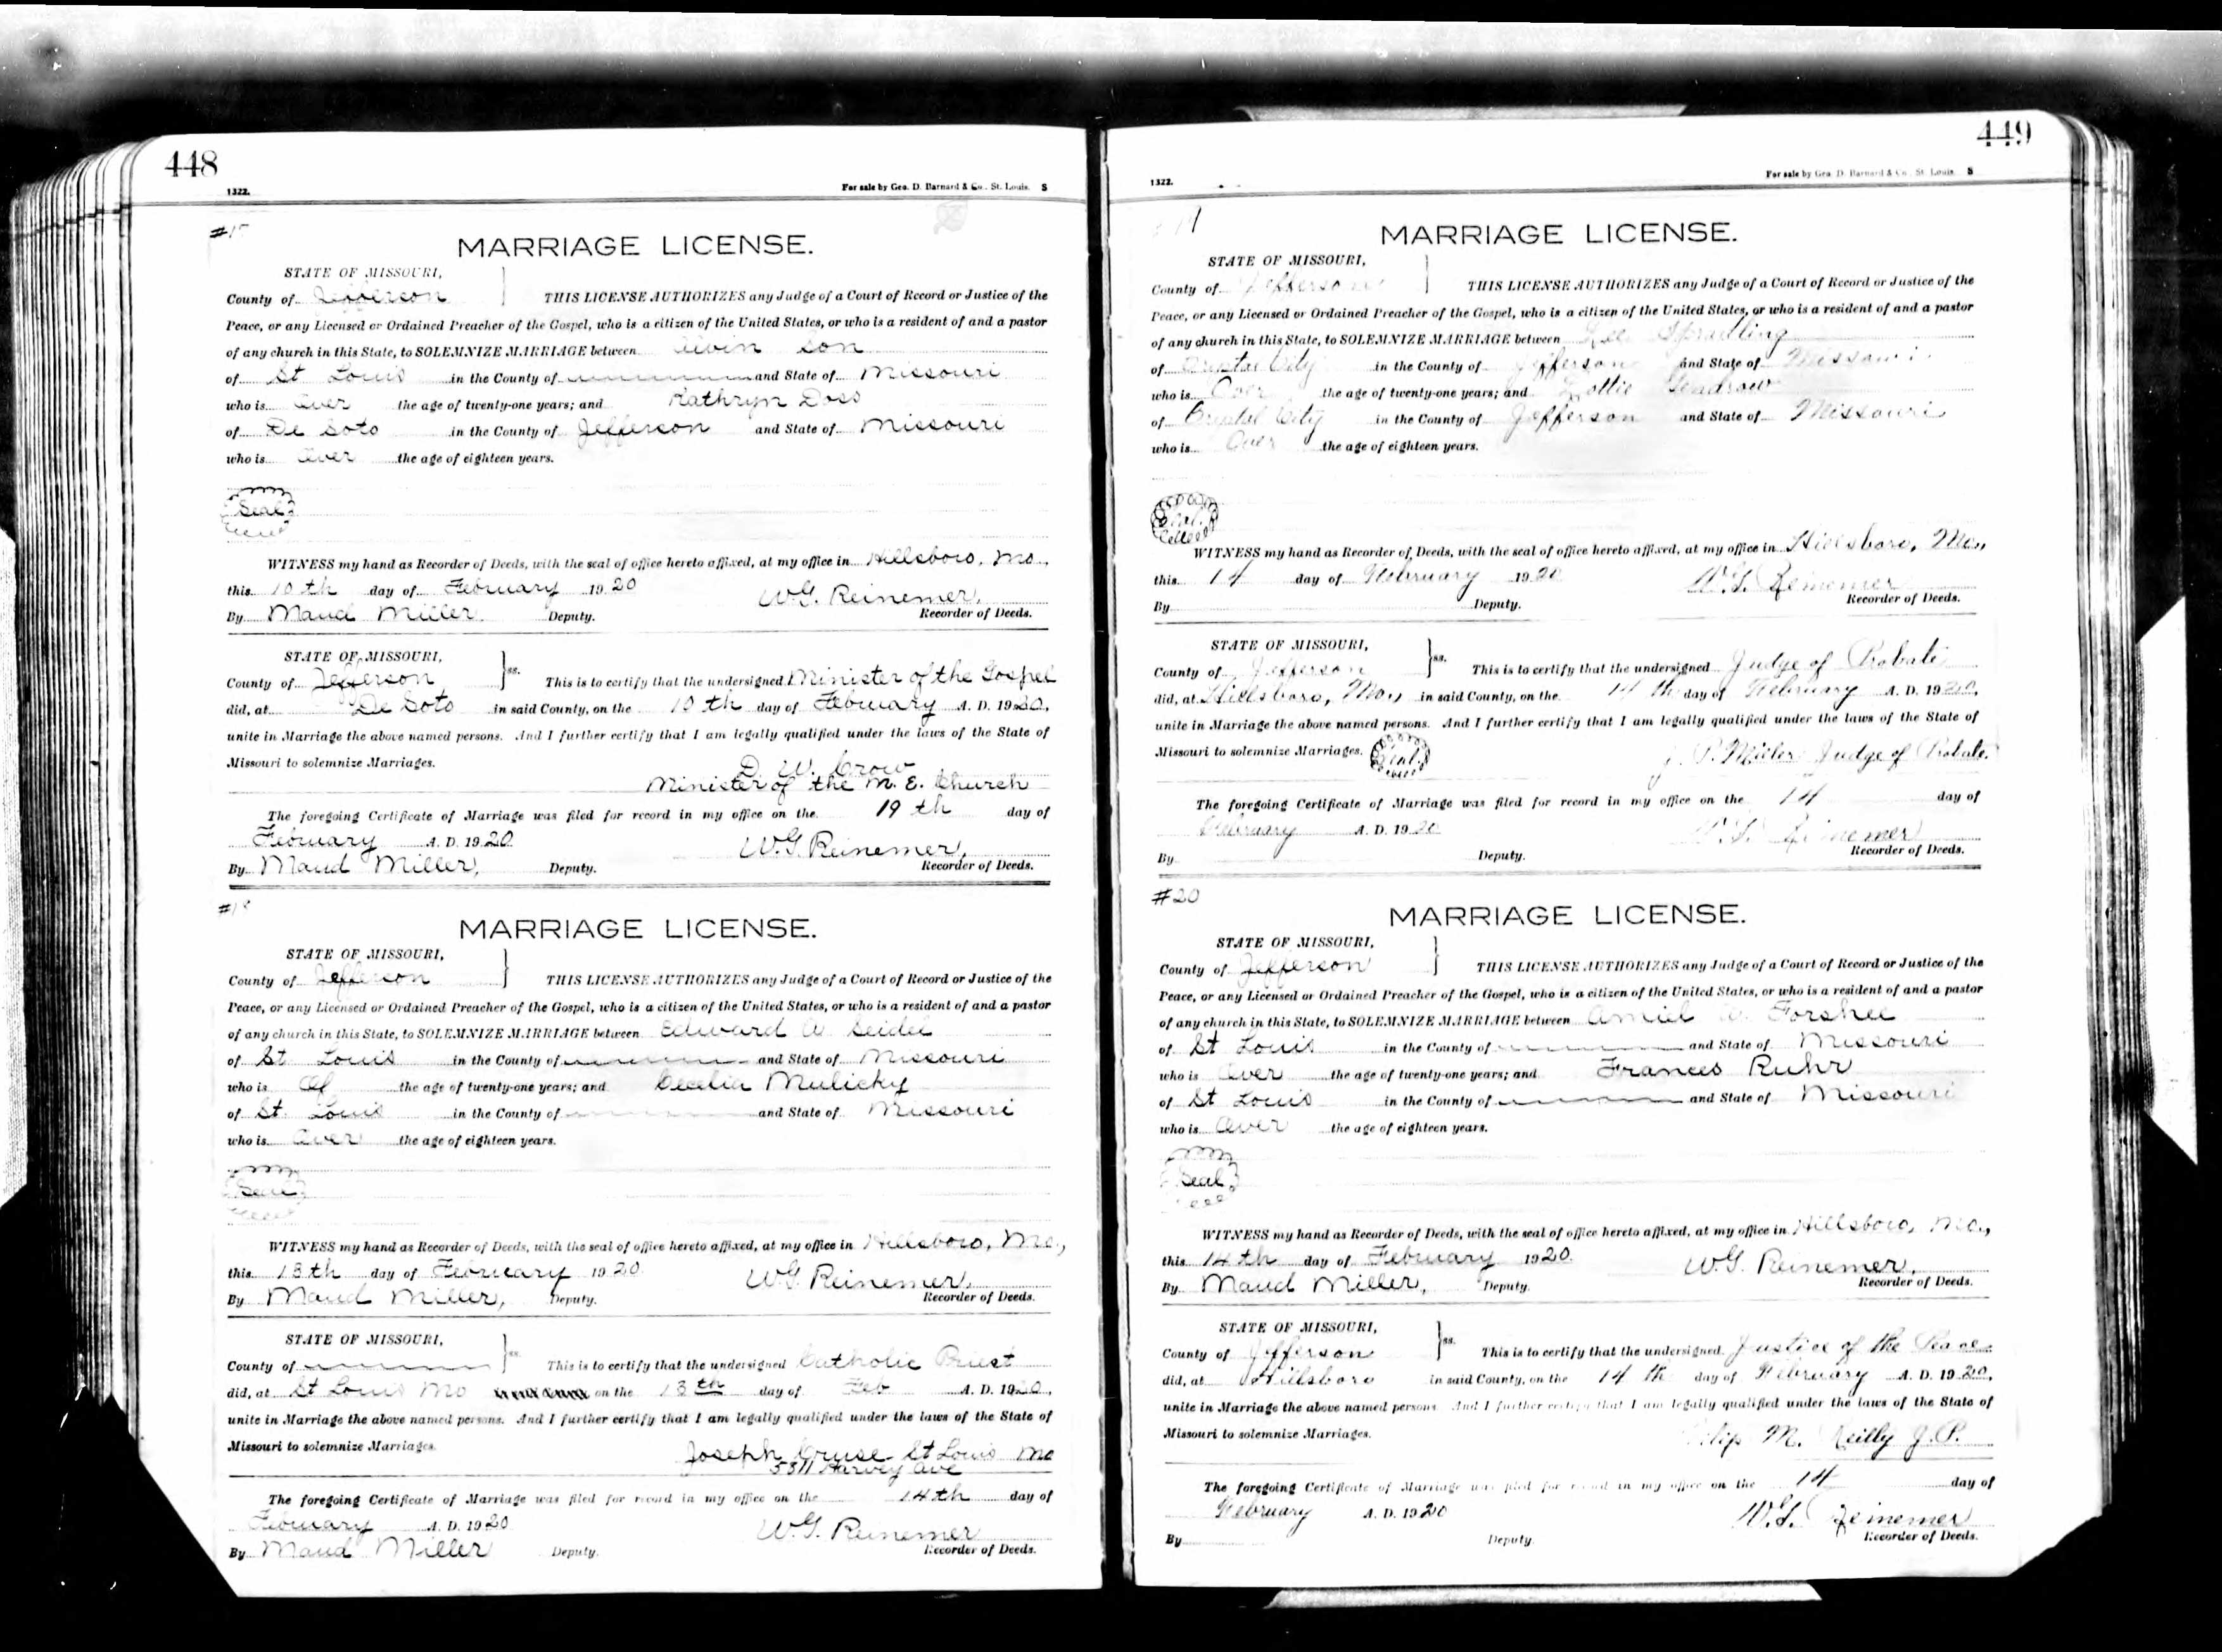 448
1322.
For sale by Geo. D. Barnard & Co., St. Louis. S
MARRIAGE LICENSE.
STATE OF MISSOURI,
County of Jefferson THIS LICENSE AUTHORIZES any Judge of a Court of Record or Justice of the
Peace, or any Licensed or Ordained Preacher of the Gospel, who is a citizen of the United States, or who is a resident of and a pastor
of any church in this State, to SOLEMNIZE MARRIAGE between Alvin Son
of St Louis in the County of and State of Missouri
who is Over the age of twenty-one years; and Kathryn Doss
of De Soto in the County of Jefferson and State of Missouri
who is Over the age of eighteen years.
Seal
WITNESS my hand as Recorder of Deeds, with the seal of office hereto affixed, at my office in Hillsboro, Mo.,
this 10th day of February 1920
W.G. Reinemer,
By Maud Miller Deputy. Recorder of Deeds.
STATE OF MISSOURI,
County of Jefferson ss. This is to certify that the undersigned Minister of the Gospel
did, at De Soto in said County, on the 10th day of February A. D. 1920,
unite in Marriage the above named persons. And I further certify that I am legally qualified under the laws of the State of
Missouri to solemnize Marriages.
D. W. Crow
Minister of the M. E. Church
The foregoing Certificate of Marriage was filed for record in my office on the 19th day of
February A. D. 1920
W.G. Reinemer,
By Maud Miller, Deputy. Recorder of Deeds.
MARRIAGE LICENSE.
STATE OF MISSOURI,
County of Jefferson THIS LICENSE AUTHORIZES any Judge of a Court of Record or Justice of the
Peace, or any Licensed or Ordained Preacher of the Gospel, who is a citizen of the United States, or who is a resident of and a pastor
of any church in this State, to SOLEMNIZE MARRIAGE between Edward W Seidel
of St Louis in the County of and State of Missouri
who is Of the age of twenty-one years; and Cecelia Mulicky
of St. Louis in the County of and State of Missouri
who is Over the age of eighteen years.
Seal
WITNESS my hand as Recorder of Deeds, with the seal of office hereto affixed, at my office in Hillsboro, Mo.,
this 13th day of February 1920
W.G. Reinemer,
By Maud Miller, Deputy. Recorder of Deeds.
STATE OF MISSOURI,
County of ss. This is to certify that the undersigned Catholic Priest
did, at St Louis Mo on the 13th day of Feb A. D. 1920,
unite in Marriage the above named persons. And I further certify that I am legally qualified under the laws of the State of
Missouri to solemnize Marriages.
Joseph Cruse St Louis Mo
Harvey Ave
The foregoing Certificate of Marriage was filed for record in my office on the 14th day of
February A. D. 1920
W.G. Reinemer
By Maud Miller Deputy. Recorder of Deeds.
449
1322.
For sale by Geo. D. Barnard & Co., St. Louis. S
MARRIAGE LICENSE.
STATE OF MISSOURI,
County of Jefferson THIS LICENSE AUTHORIZES any Judge of a Court of Record or Justice of the
Peace, or any Licensed or Ordained Preacher of the Gospel, who is a citizen of the United States, or who is a resident of and a pastor
of any church in this State, to SOLEMNIZE MARRIAGE between Lee Spradling
of Crystal City in the County of Jefferson and State of Missouri
who is Over the age of twenty-one years; and Lottie
of Crystal City in the County of Jefferson and State of Missouri
who is Over the age of eighteen years.
Seal.
WITNESS my hand as Recorder of Deeds, with the seal of office hereto affixed, at my office in Hillsboro, Mo.,
this 14 day of February 1920
W.G. Reinemer
By Deputy. Recorder of Deeds.
STATE OF MISSOURI,
County of Jefferson ss. This is to certify that the undersigned Judge of Probate
did, at Hillsboro, Mo., in said County, on the 14th day of February A. D. 1920,
unite in Marriage the above named persons. And I further certify that I am legally qualified under the laws of the State of
Missouri to solemnize Marriages. Seal. P. Miller Judge of Probate.
The foregoing Certificate of Marriage was filed for record in my office on the 14 day of
February A. D. 1920
W.G. Reinemer
By Deputy. Recorder of Deeds.
#20
MARRIAGE LICENSE.
STATE OF MISSOURI,
County of Jefferson THIS LICENSE AUTHORIZES any Judge of a Court of Record or Justice of the
Peace, or any Licensed or Ordained Preacher of the Gospel, who is a citizen of the United States, or who is a resident of and a pastor
of any church in this State, to SOLEMNIZE MARRIAGE between Amiel W. Forshee
of St Louis in the County of and State of Missouri
who is Over the age of twenty-one years; and Frances Ruhr
of St Louis in the County of and State of Missouri
who is Over the age of eighteen years.
Seal
WITNESS my hand as Recorder of Deeds, with the seal of office hereto affixed, at my office in Hillsboro, Mo.,
this 14th day of February 1920.
W.G. Reinemer,
By Maud Miller, Deputy. Recorder of Deeds.
STATE OF MISSOURI,
County of Jefferson ss. This is to certify that the undersigned Justice of the Peace
did, at Hillsboro in said County, on the 14th day of February A. D. 1920,
unite in Marriage the above named persons. And I further certify that I am legally qualified under the laws of the State of
Missouri to solemnize Marriages.
M. Reilly J.P.
The foregoing Certificate of Marriage was filed for record in my office on the 14 day of
February A. D. 1920
W.G. Reinemer
By Deputy. Recorder of Deeds.